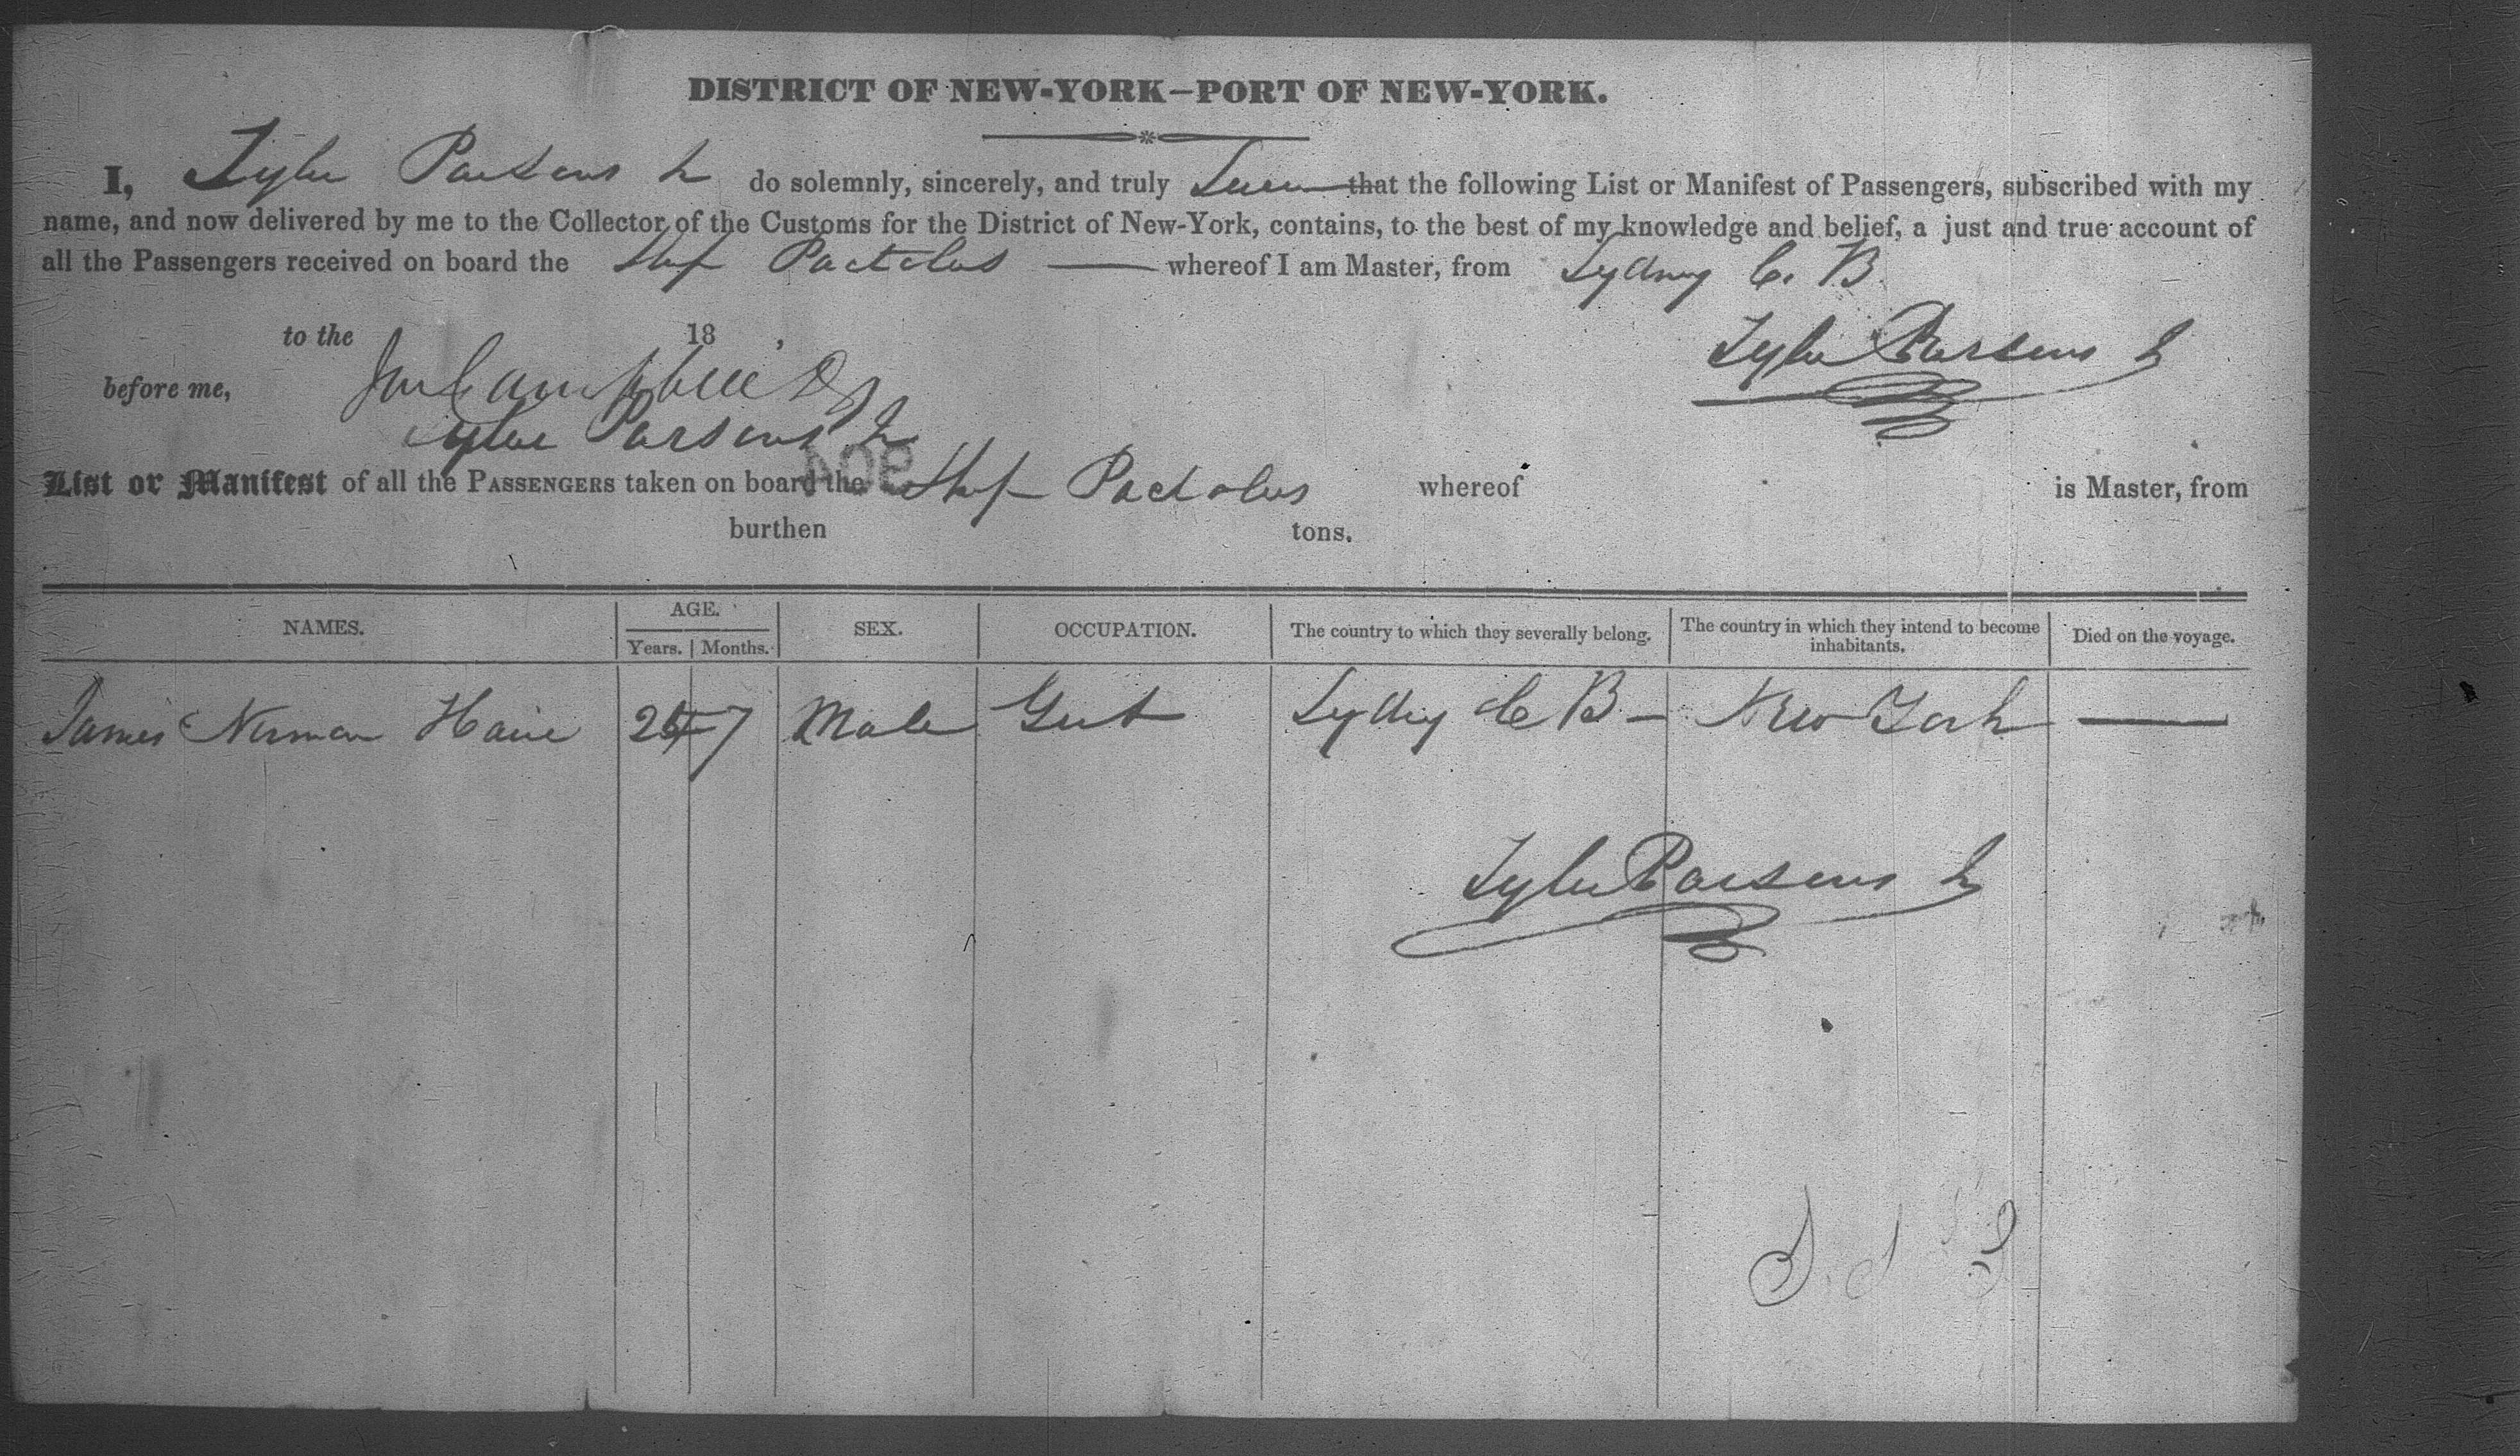 DISTRICT OF NEW-YORK—PORT OF NEW-YORK.
I, Tyler Parsons Jr do solemnly, sincerely, and truly Swear that the following List or Manifest of Passengers, subscribed with my
name, and now delivered by me to the Collector of the Customs for the District of New-York, contains, to the best of my knowledge and belief, a just and true account of
all the Passengers received on board the Ship Pactolus — whereof I am Master, from Sydney C. B.
to the 18 ,
Tyler Parsons Jr
before me,
Tyler Parsons Jr
List or Manifest of all the PASSENGERS taken on board the Ship Pactolus whereof is Master, from
burthen tons.
NAMES. AGE. SEX. OCCUPATION. The country to which they severally belong. The country in which they intend to become inhabitants. Died on the voyage.
Years. Months.
James Norman 7 Male Gent Sydney C B — New York —
Tyler Parsons Jr